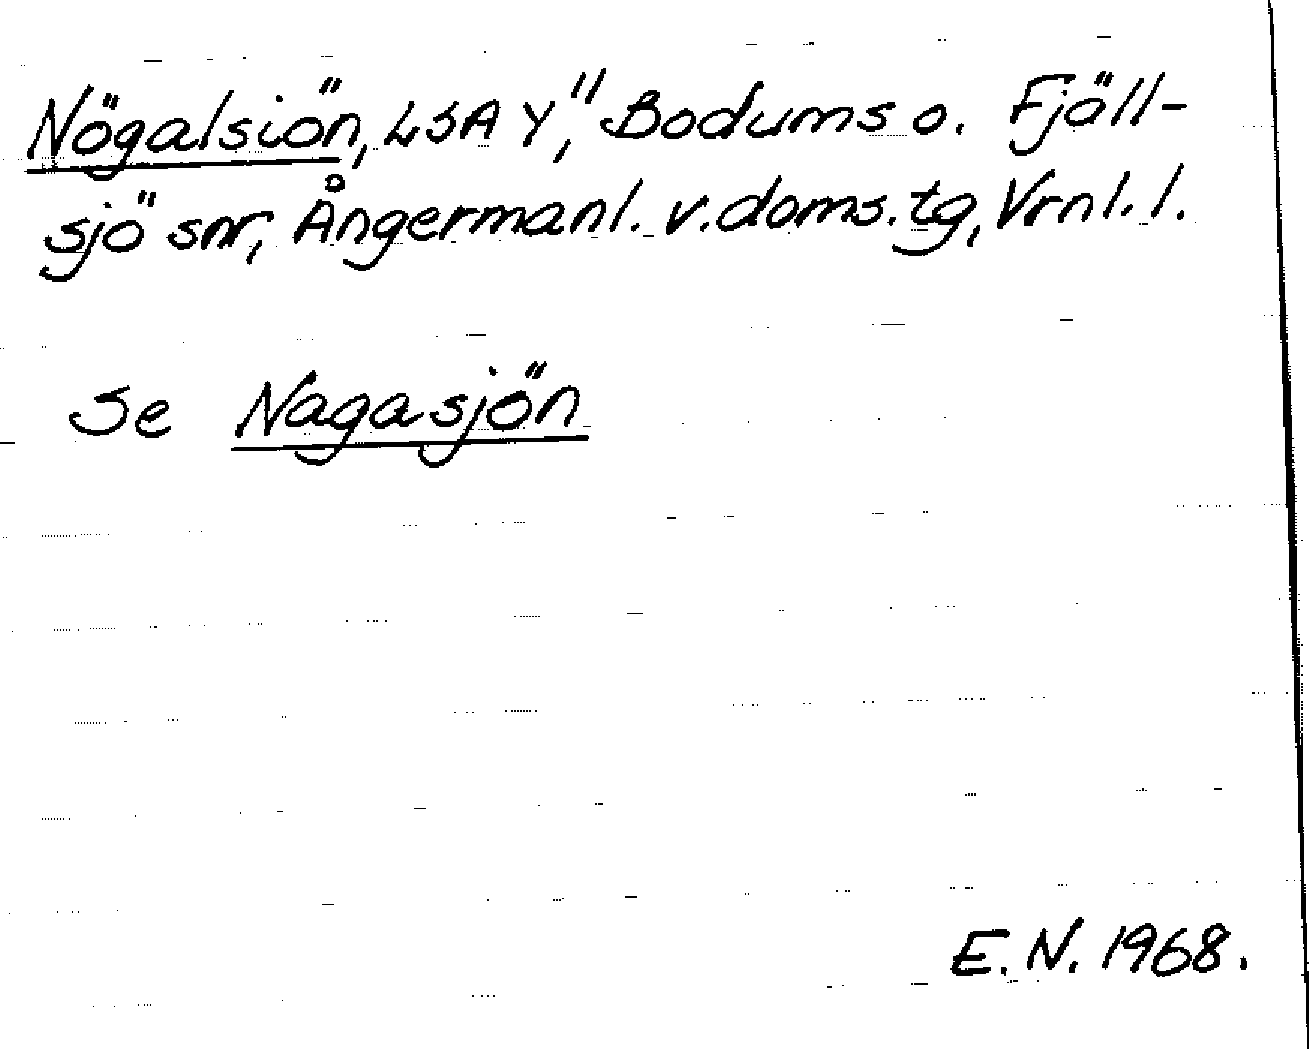 Nögalsiön, LSA Y," Bodums o. Fjäll-
sjö snr, Ångermanl. v. doms. tg, Vrnl. l.
Se Nagasjön
E. N. 1968.